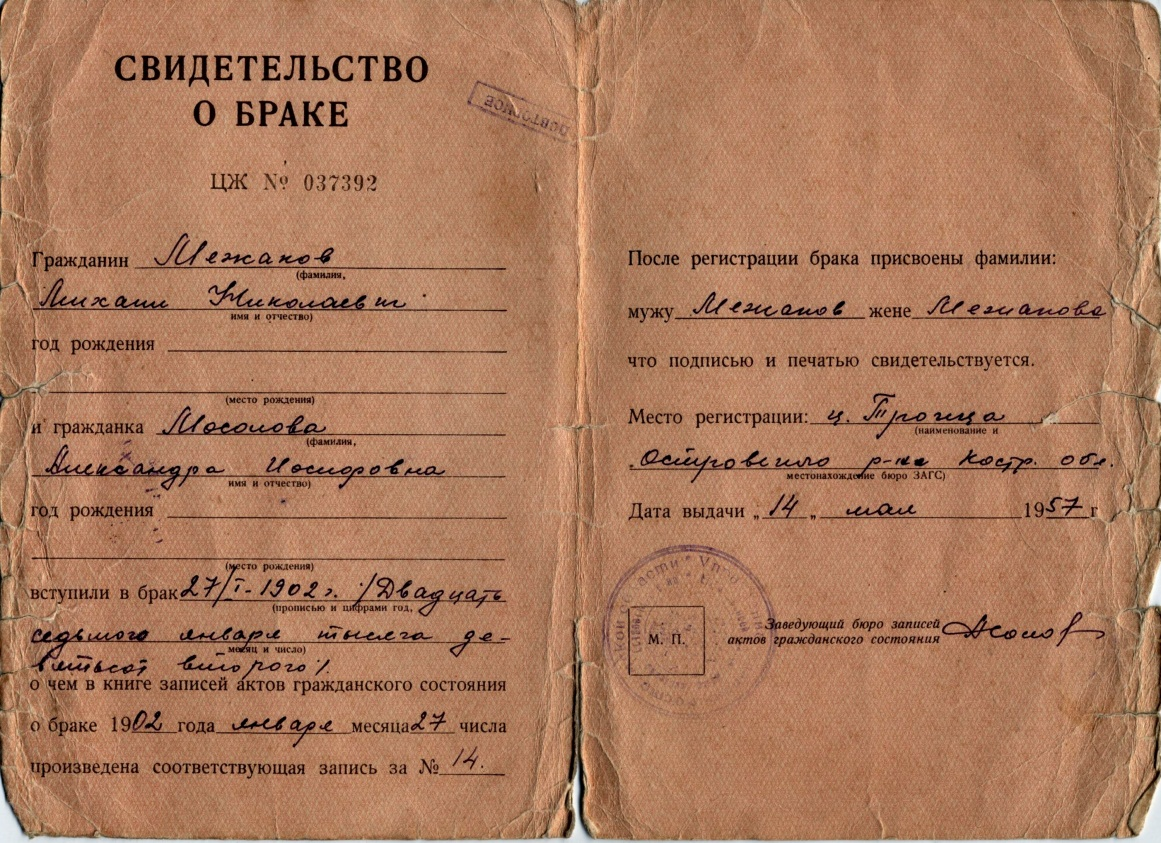 СВИДЕТЕЛЬСТВО
О БРАКЕ
ПОВТОРНОЕ
ЦЖ № 037392
Гражданин Межаков
(фамилия,
Михаил Николаевич
имя и отчество)
год рождения
(место рождения)
и гражданка Мосолова
(фамилия,
Александра
имя и отчество)
год рождения
(место рождения)
вступили в брак 27/I-1902 г. /Двадцать
(прописью и цифрами год,
седьмого января тысяча де-
месяц и число)
вятьсот второго/.
о чем в книге записей актов гражданского состояния
о браке 1902 года января месяца 27 числа
произведена соответствующая запись за № 14.
После регистрации брака присвоены фамилии:
мужу Межаков жене Межакова
что подписью и печатью свидетельствуется.
Место регистрации: ц. Троица
(наименование и
Островского р-на Костр. обл.
местонахождение бюро ЗАГС)
Дата выдачи „ 14 „ мая 1957 г
М. П.
Заведующий бюро записей
актов гражданского состояния